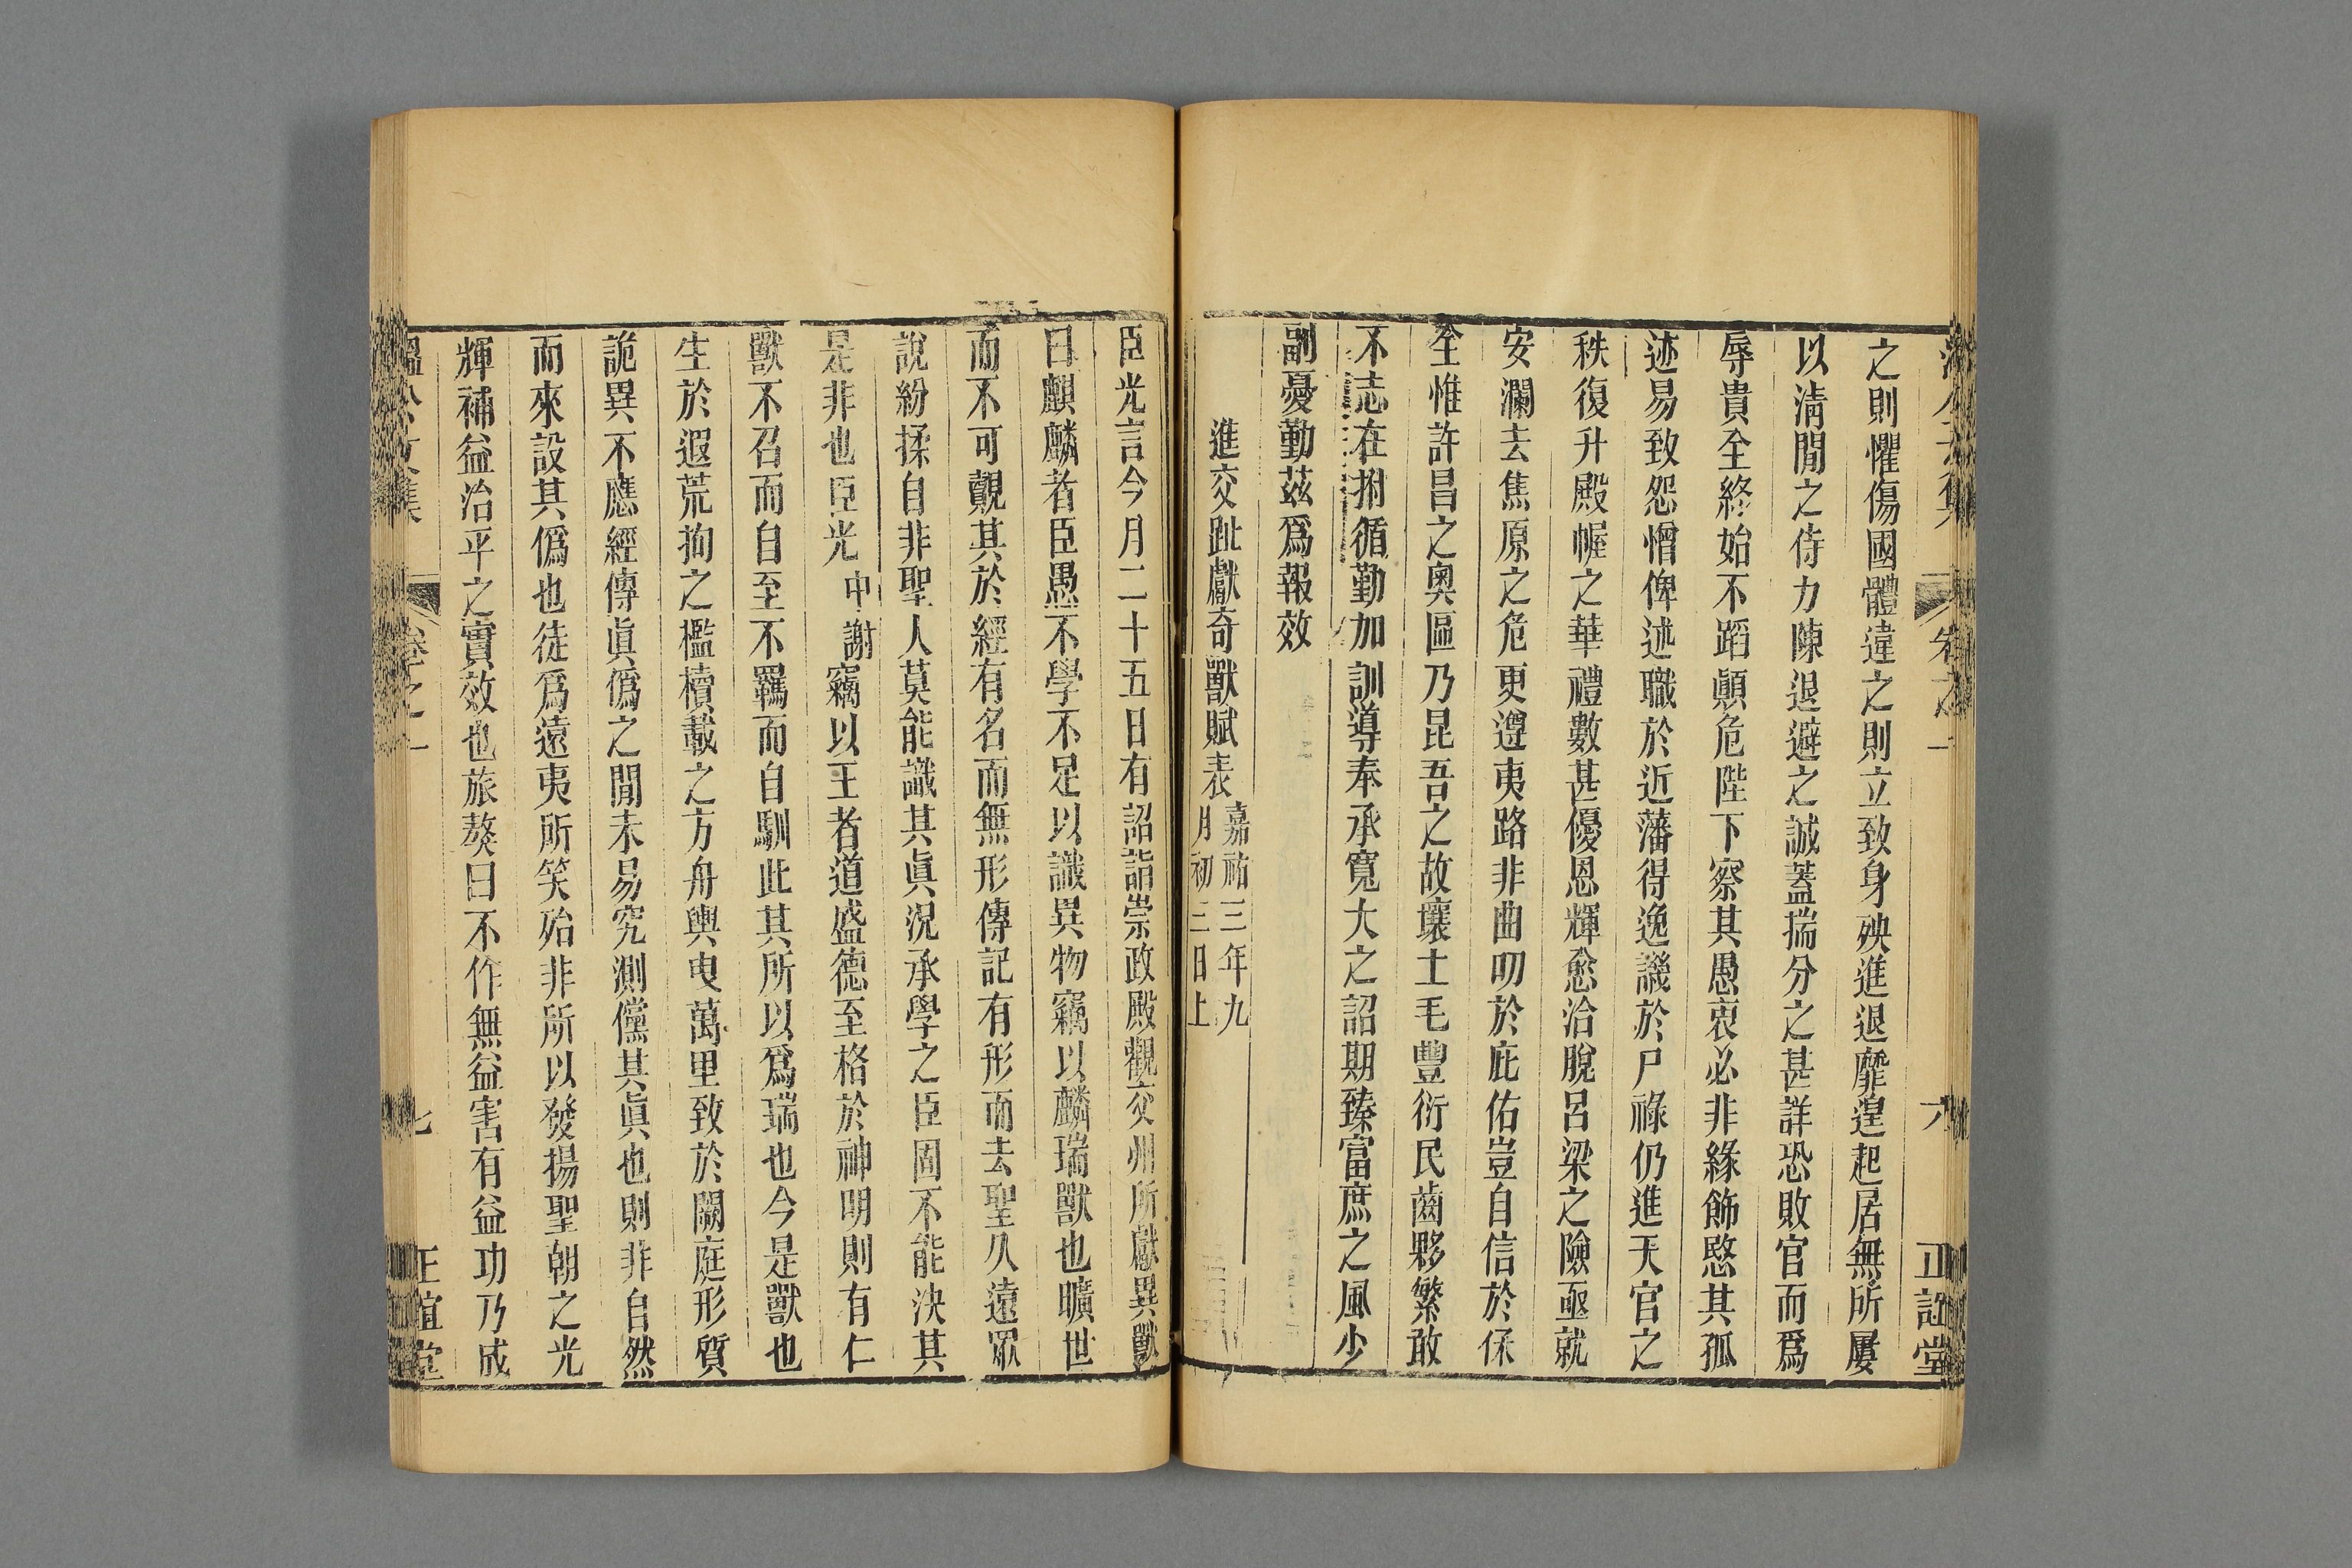 之則懼傷國體違之則立致身殃進退靡遑起居無所屢
以淸閒之侍力陳退避之誠蓋揣分之甚詳恐敗官而爲
辱貴全終始不蹈顚危陛下察其愚衷必非緣飾愍其孤
迹易致怨憎俾述職於近藩得逸譏於尸祿仍進天官之
秩復升殿幄之華禮數甚優恩輝愈洽脫呂梁之險亟就
安瀾去焦原之危更遵夷路非曲叨於庇佑豈自信於保
全惟許昌之奧區乃昆吾之故壤土毛豐衍民齒夥繁敢
不志在拊循勤加訓導奉承寬大之詔期臻富庶之風少
副憂勤茲爲報效
進交趾獻奇獸賦表
嘉祐三年九
月初三日上
臣光言今月二十五日有詔詣崇政殿觀交州所獻異獸
曰麒麟者臣愚不學不足以識異物竊以麟瑞獸也曠世
而不可覿其於經有名而無形傳記有形而去聖久遠眾
說紛揉自非聖人莫能識其眞況承學之臣固不能決其
是非也臣光中謝竊以王者道盛德至格於神明則有仁
獸不召而自至不羈而自馴此其所以爲瑞也今是獸也
生於遐荒拘之檻櫝載之方舟輿曳萬里致於闕庭形質
詭異不應經傳眞僞之閒未易究測儻其眞也則非自然
而來設其僞也徒爲遠夷所笑殆非所以發揚聖朝之光
輝補益治平之實效也旅獒曰不作無益害有益功乃成
溫公文集 卷之一 七 正誼堂